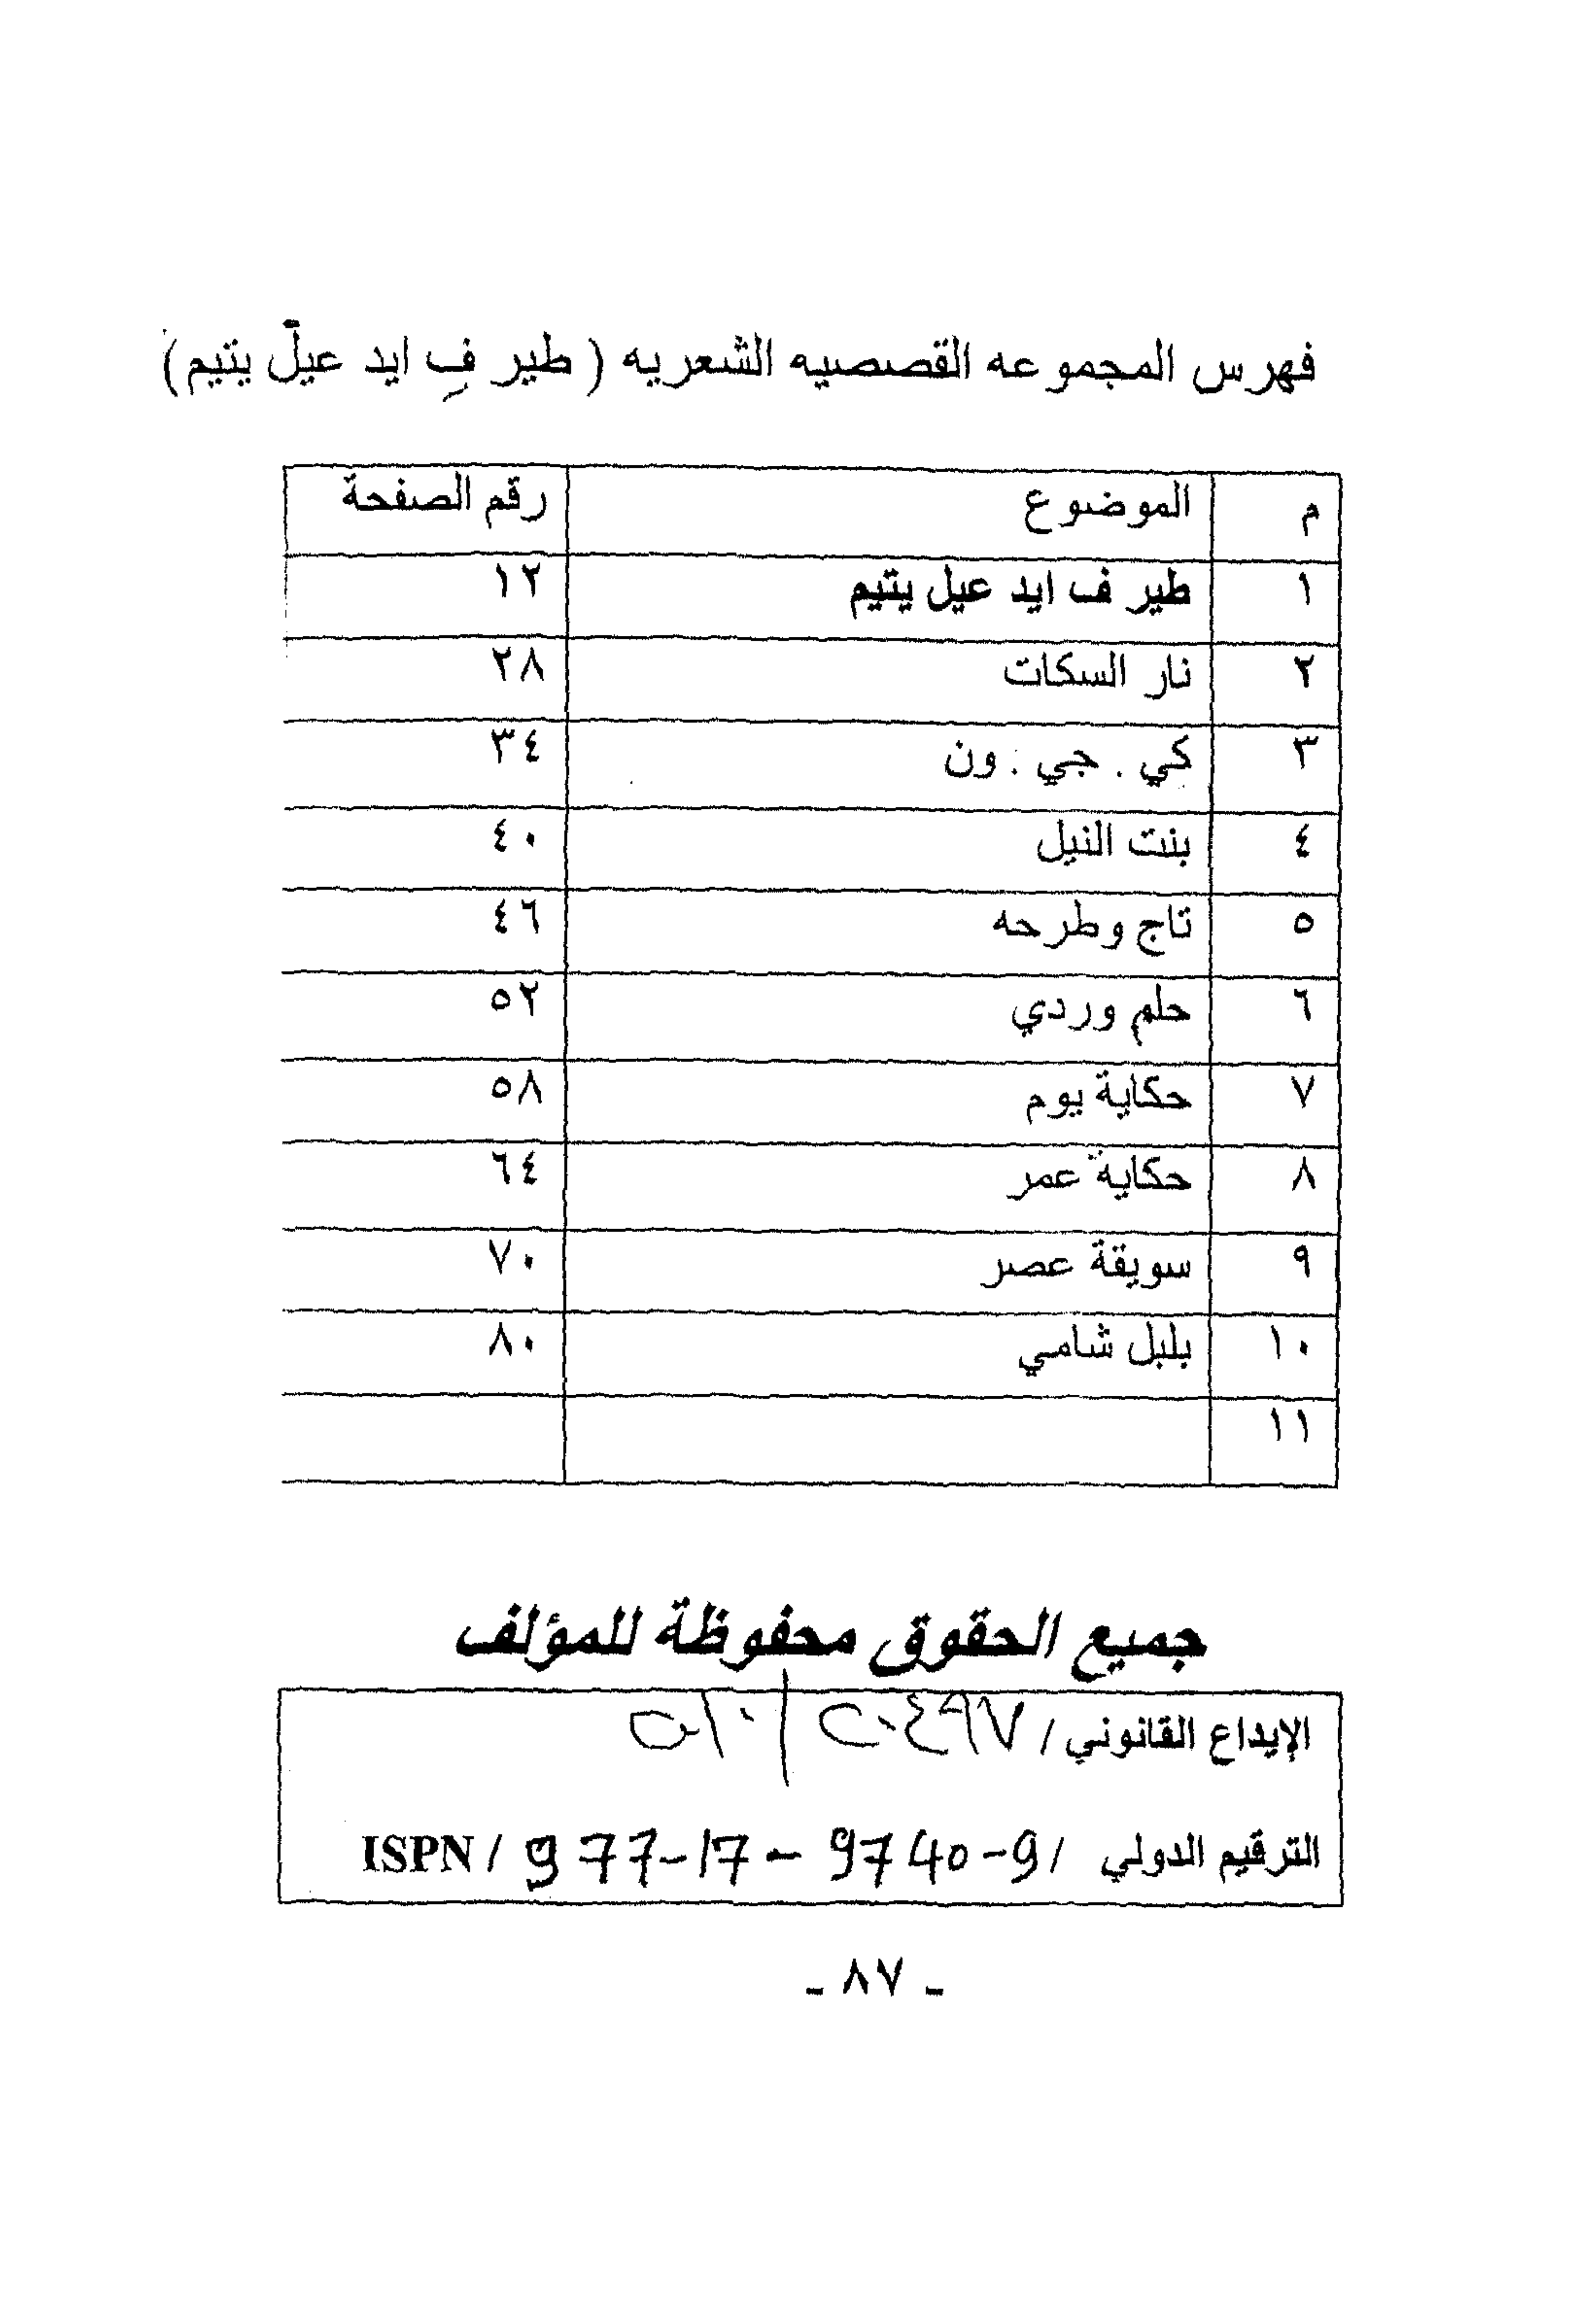 فهرس المجموعه القصصيه الشعريه ( طير فِ ايد عيلّ يتيم )
م الموضوع رقم الصفحة
١ طير ف ايد عيل يتيم ١٢
٢ نار السكات ٢٨
٣ كي . جي . ون ٣٤
٤ بنت النيل ٤٠
٥ تاج وطرحه ٤٦
٦ حلم وردي ٥٢
٧ حكاية يوم ٥٨
٨ حكاية عمر ٦٤
٩ سويقة عصر ٧٠
١٠ بلبل شامي ٨٠
١١
جميع الحقوق محفوظة للمؤلف
الإيداع القانوني /
الترقيم الدولي / ISPN / 977-17-9740-9
- ٨٧ -